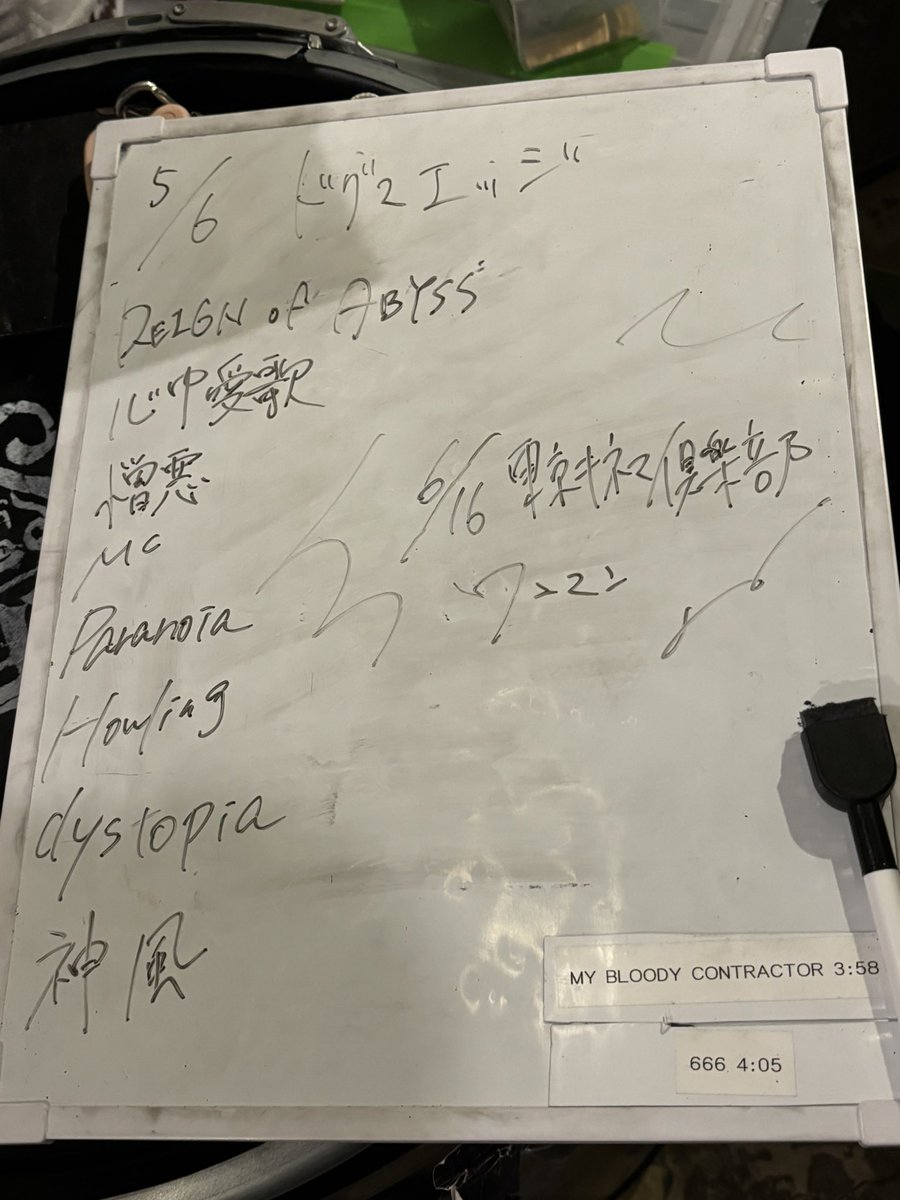 5/6 ビヂュエッジ
REIGN of ABYSS
心中愛歌
憎悪
MC
6/16 東京キネマ倶楽部
ワンマン
Paranoia
Howling
dystopia
神風
MY BLOODY CONTRACTOR 3:58
666 4:05